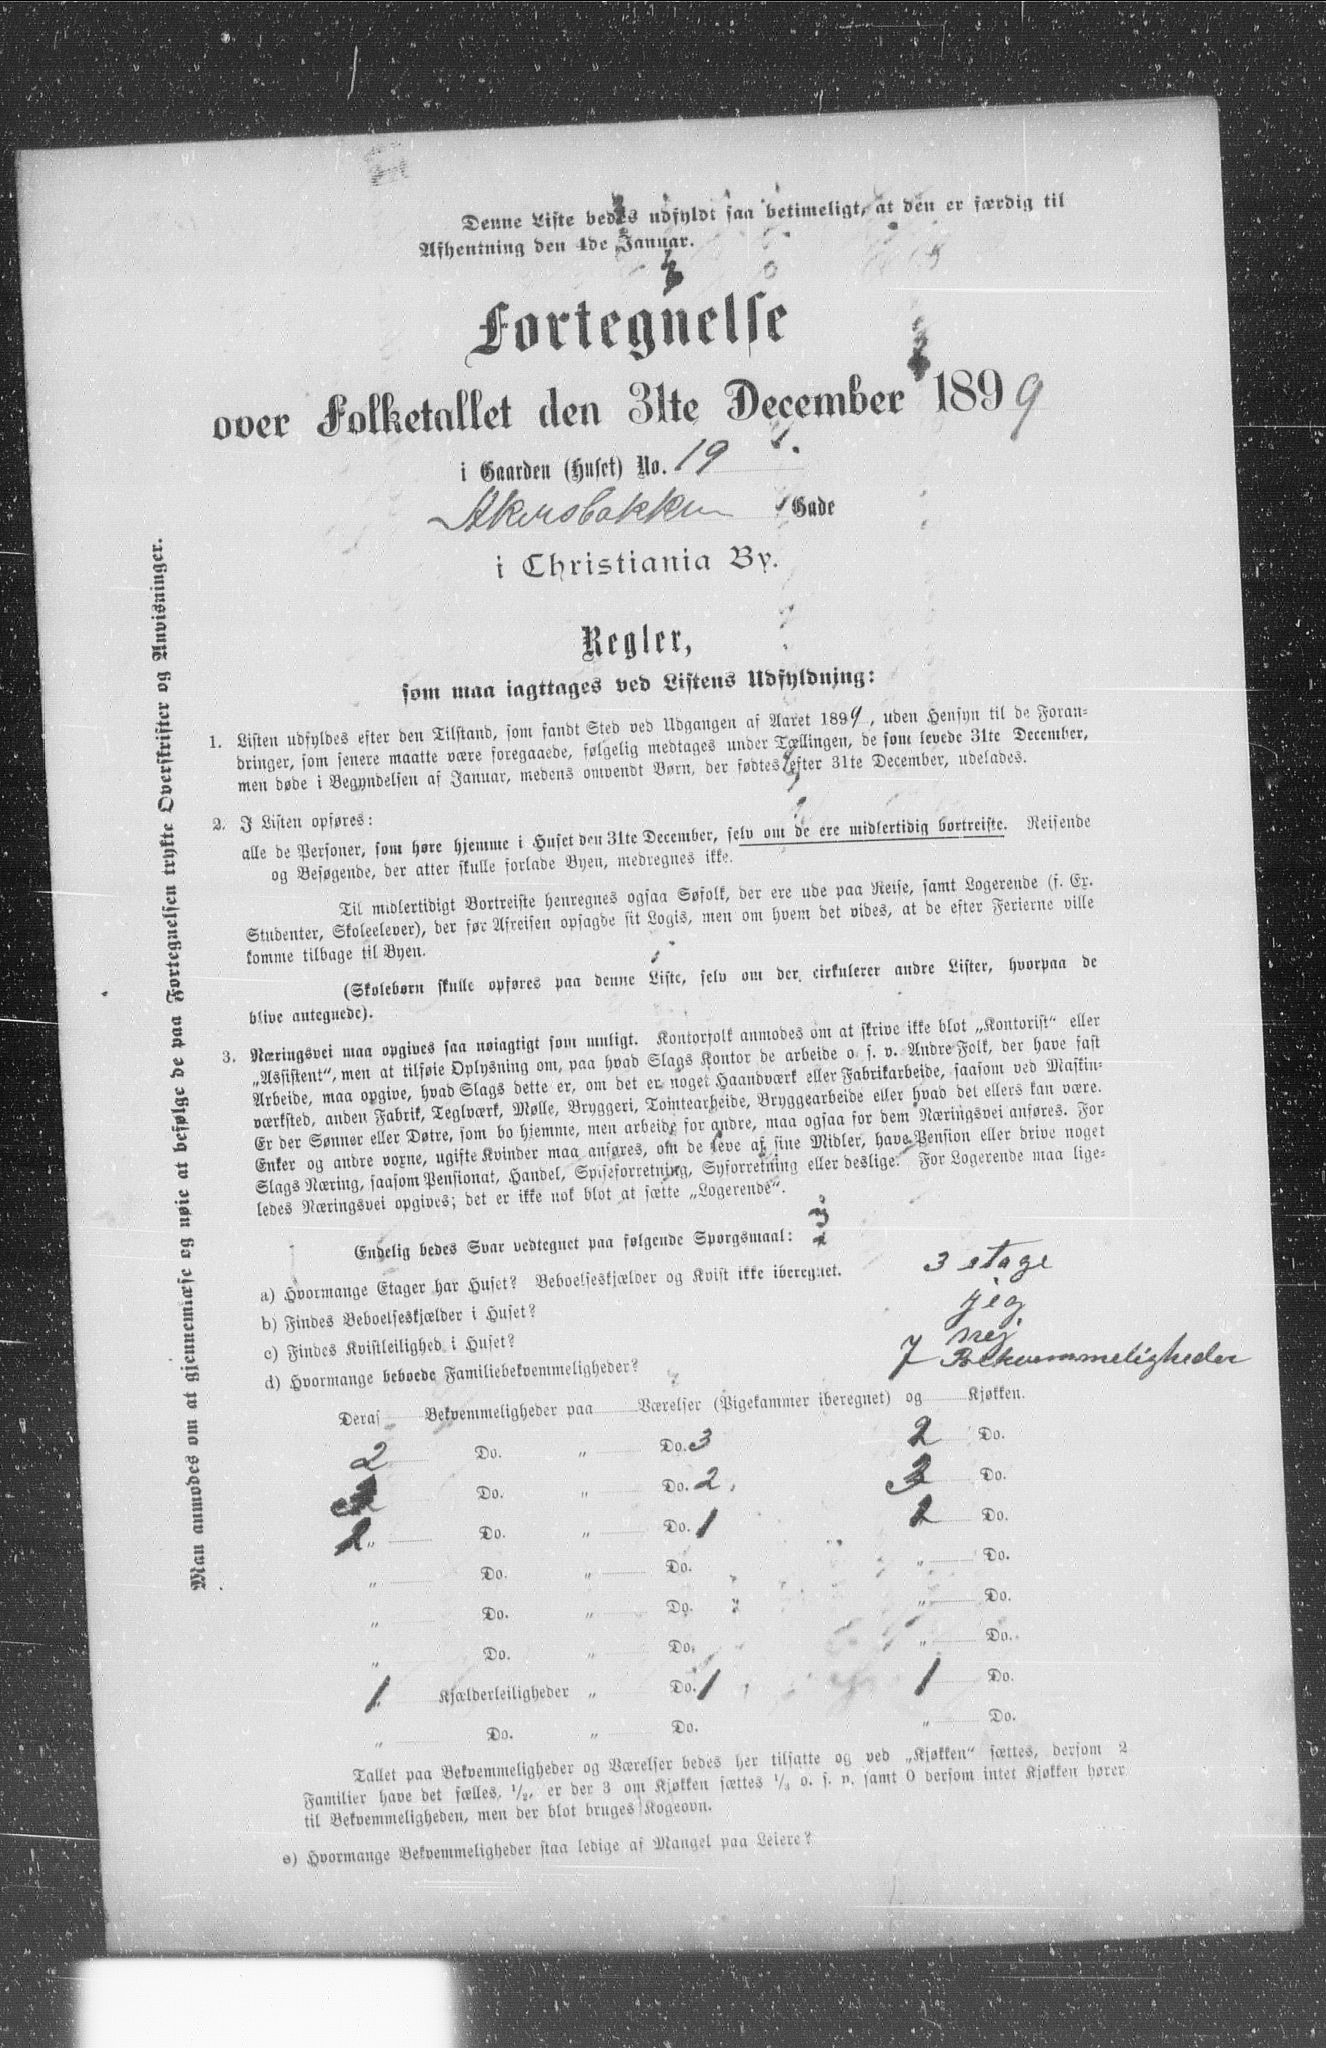 Denne Liste bedes udfyldt saa betimeligt, at den er færdig til
Afhentning den 4de Januar.
Fortegnelse
over Folketallet den 31te December 1899
i Gaarden (Huset) No. 19
Akersbakken Gade
i Christiania By.
Regler,
som maa iagttages ved Listens Udfyldning:
1. Listen udfyldes efter den Tilstand, som fandt Sted ved Udgangen af Aaret 1899, uden Hensyn til de Foran-
dringer, som senere maatte være foregaaede, følgelig medtages under Tællingen, de som levede 31te December,
men døde i Begyndelsen af Januar, medens omvendt Børn, der fødtes efter 31te December, udelades.
2. I Listen opføres:
alle de Personer, som høre hjemme i Huset den 31te December, selv om de ere midlertidig bortreiste. Reisende
og Besøgende, der atter skulle forlade Byen, medregnes ikke.
Til midlertidigt Bortreiste henregnes ogsaa Søfolk, der ere ude paa Reise, samt Logerende (f. Ex.
Studenter, Skoleelever), der før Afreisen opsagde sit Logis, men om hvem det vides, at de efter Ferierne ville
komme tilbage til Byen.
(Skolebørn skulle opføres paa denne Liste, selv om der cirkulerer andre Lister, hvorpaa de
blive antegnede).
3. Næringsvei maa opgives saa nøiagtigt som muligt. Kontorfolk anmodes om at skrive ikke blot „Kontorist“ eller
„Assistent“, men at tilføie Oplysning om, paa hvad Slags Kontor de arbeide o. s. v. Andre Folk, der have fast
Arbeide, maa opgive, hvad Slags dette er, om det er noget Haandværk eller Fabrikarbeide, saasom ved Maskin-
værksted, anden Fabrik, Teglværk, Mølle, Bryggeri, Tomtearbeide, Bryggearbeide eller hvad det ellers kan være.
Er der Sønner eller Døtre, som bo hjemme, men arbeide for andre, maa ogsaa for dem Næringsvei anføres. For
Enker og andre voxne, ugifte Kvinder maa anføres, om de leve af sine Midler, have Pension eller drive noget
Slags Næring, saasom Pensionat, Handel, Spiseforretning, Syforretning eller deslige. For Logerende maa lige-
ledes Næringsvei opgives; det er ikke nok blot at sætte „Logerende“.
Endelig bedes Svar vedtegnet paa følgende Spørgsmaal:
a) Hvormange Etager har Huset? Beboelseskjælder og Kvist ikke iberegnet. 3 etage
b) Findes Beboelseskjælder i Huset? jeg
c) Findes Kvistleilighed i Huset? nej
d) Hvormange beboede Familiebekvemmeligheder? 7 Bekvemmeligheder
Deraf Bekvemmeligheder paa Værelser (Pigekammer iberegnet) og Kjøkken.
2 Do. „ Do. 3 2 Do.
3 Do. „ Do. 2 3 Do.
2 „ Do. „ Do. 1 2 Do.
„ Do. „ Do. „ Do.
„ Do. „ Do. „ Do.
„ Do. „ Do. „ Do.
1 „ Kjælderleiligheder „ Do. 1 1 Do.
„ Do. „ Do. „ Do.
Tallet paa Bekvemmeligheder og Værelser bedes her tilsatte og ved „Kjøkken“ sættes, dersom 2
Familier have det fælles, 1/2, er der 3 om Kjøkken sættes 1/3 o. s. v. samt 0 dersom intet Kjøkken hører
til Bekvemmeligheden, men der blot bruges Kogeovn.
e) Hvormange Bekvemmeligheder staa ledige af Mangel paa Leiere?
Man anmodes om at gjennemlæse og nøie at befølge de paa Fortegnelsen trykte Overskrifter og Anvisninger.